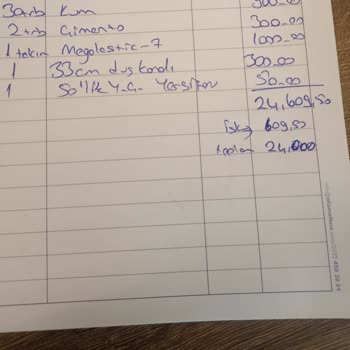 3 trb Kum 300-00
2 trb Çimento 300-00
1 takım Megalastic-7 1000-00
1 33cm duş kanalı 300.00
1 50'lik Y.G. 50.00
24,609,50
isk 609,50
toplam 24,000